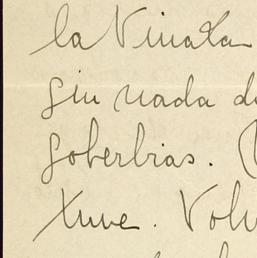 la Vinata
sin nada d
soberbias. (
Xuve. Volv